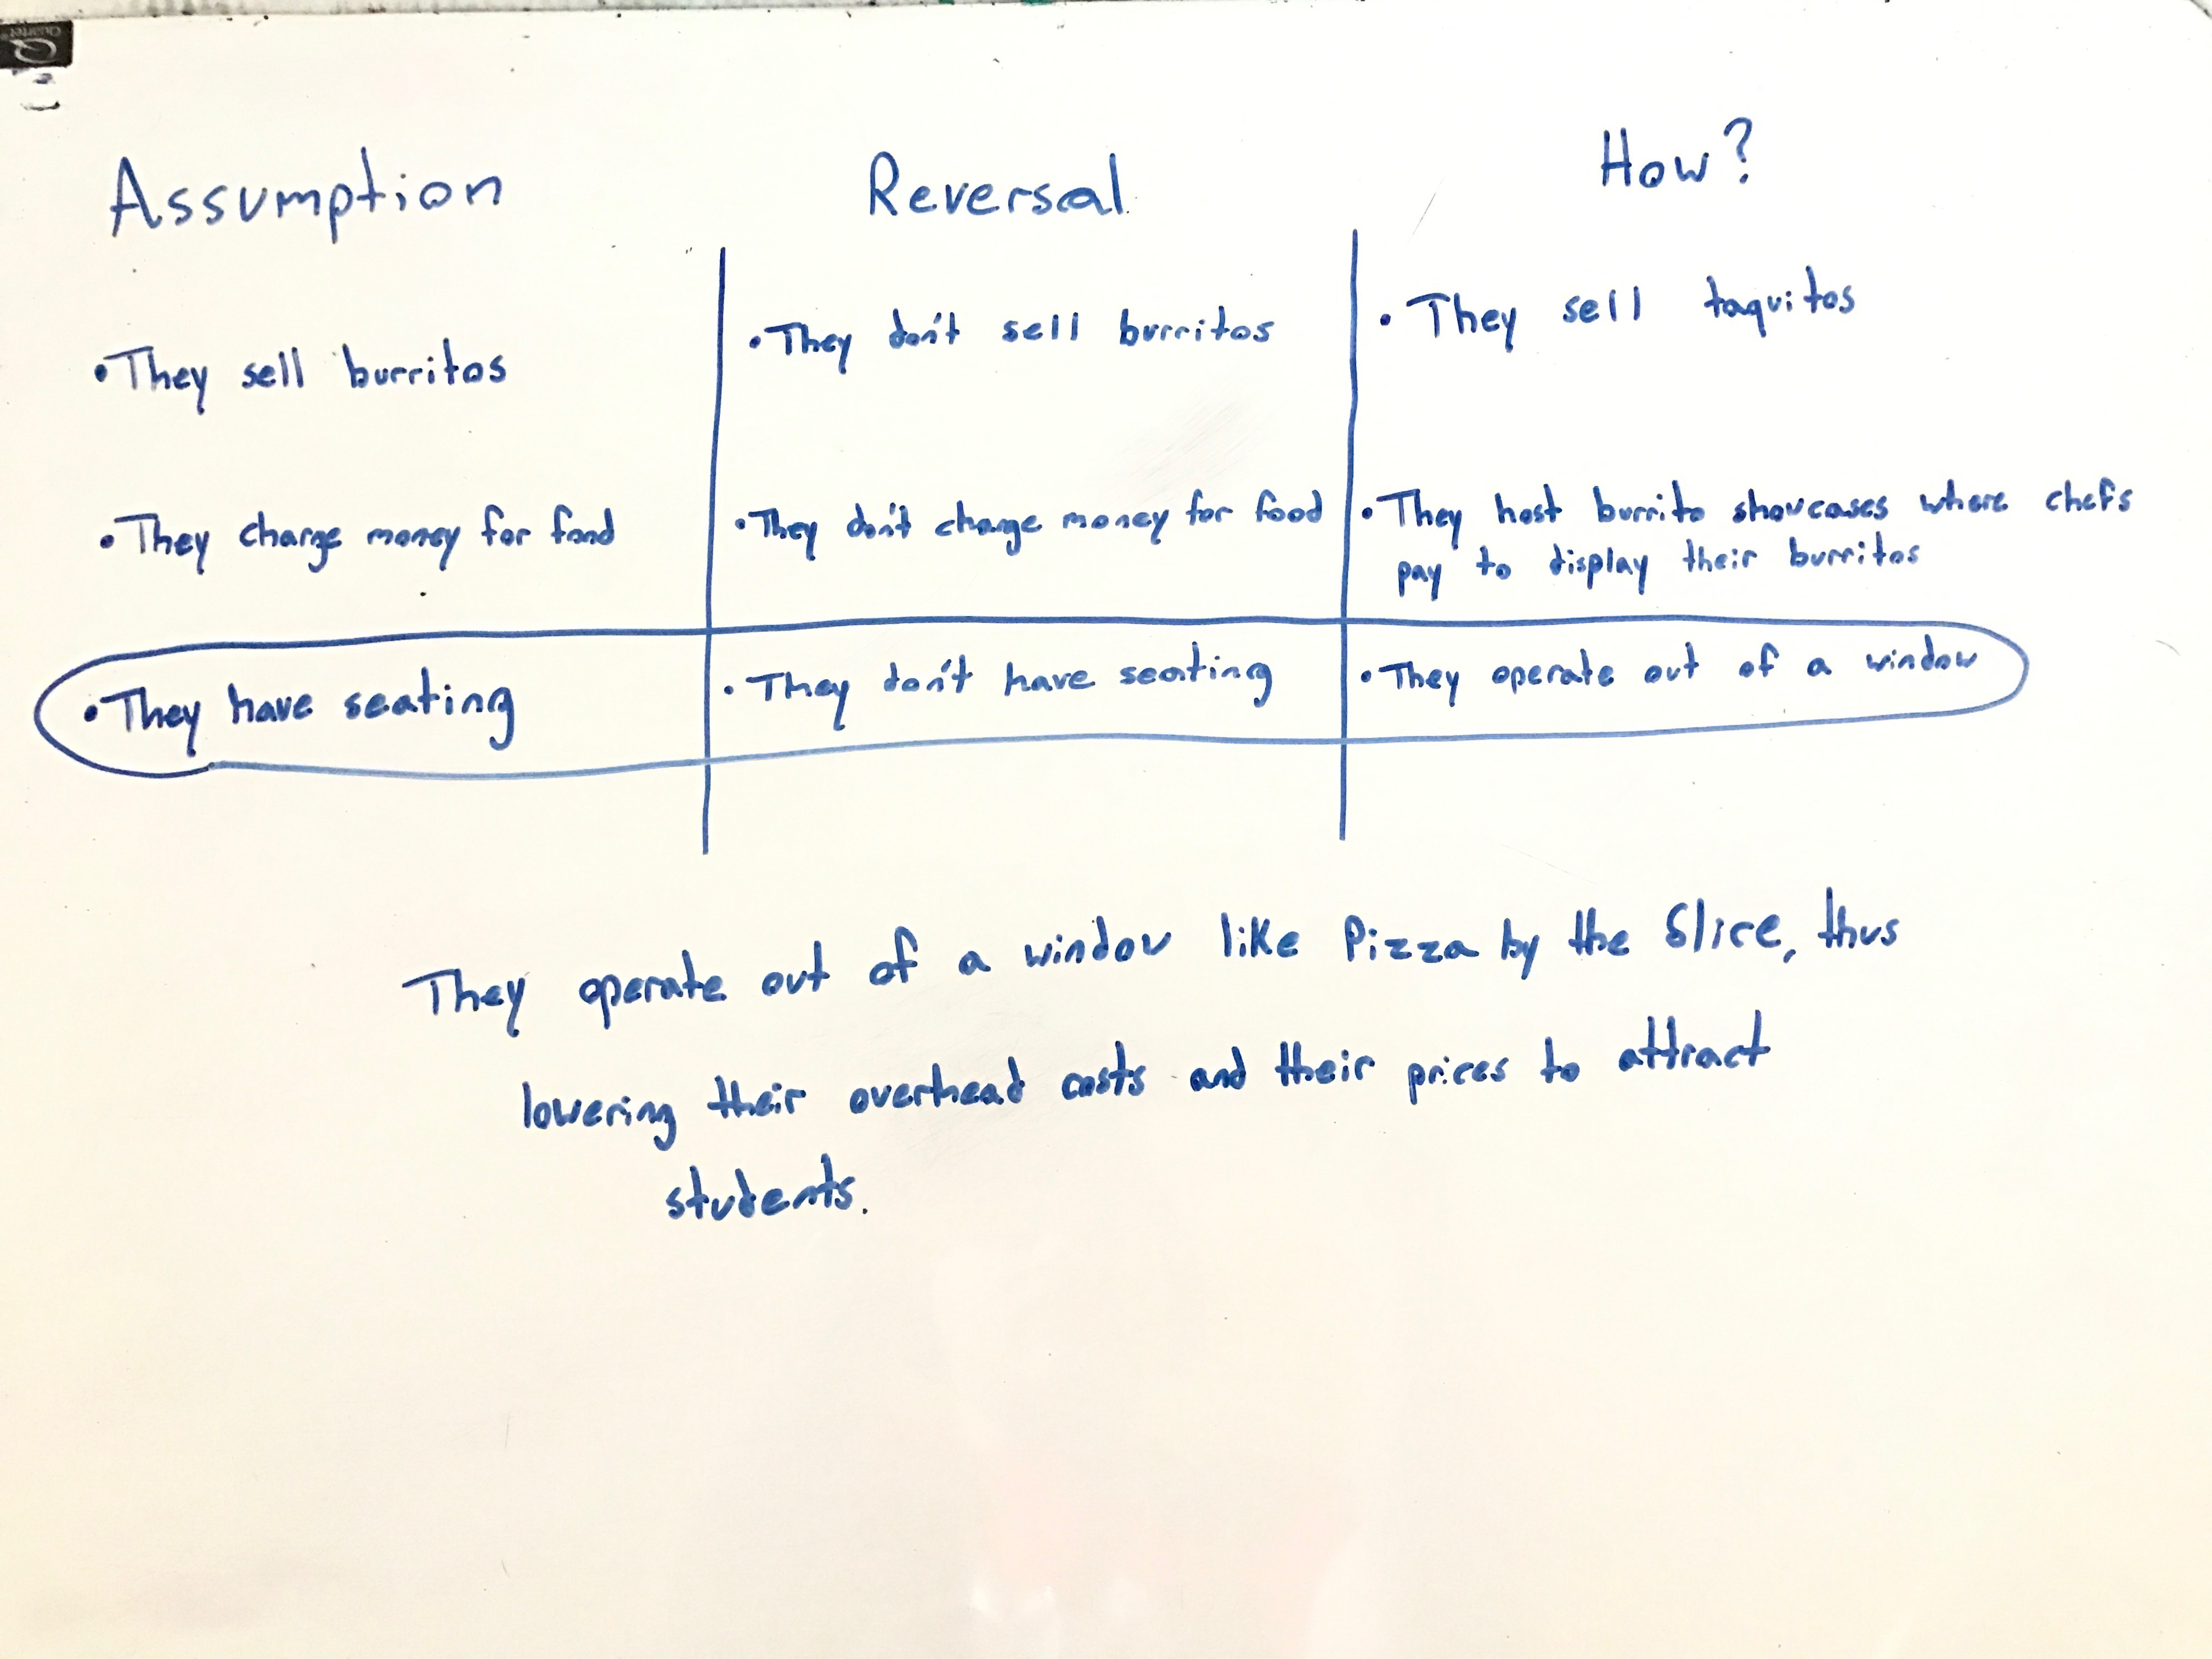 Quartet
Assumption
Reversal
How?
• They sell burritos
• They don't sell burritos
• They sell taquitos
• They charge money for food
• They don't charge money for food
• They host burrito showcases where chefs
pay to display their burritos
• They have seating
• They don't have seating
• They operate out of a window
They operate out of a window like Pizza by the Slice, thus
lowering their overhead costs and their prices to attract
students.